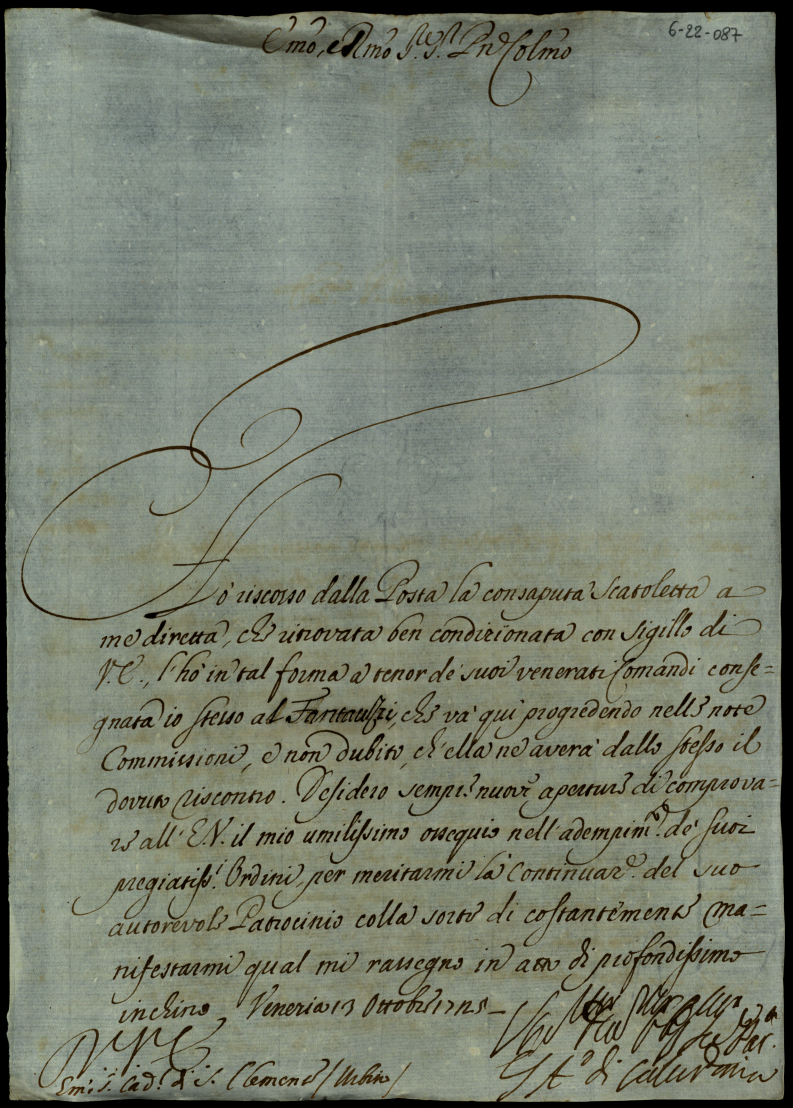 6-22-087
Emo, e Rmo Sr. Sr. Pne Colmo
Hò riscosso dalla Posta la consaputa scatoletta a
me diretta, che ritrovata ben condizionata con sigillo di
V.E., l'hò in tal forma a tenor de' suoi venerati Comandi conse=
gnata io stesso al Fantauzzi, che và qui progredendo nelle note
Commissioni, e non dubito, ch'ella ne averà dallo stesso il
dovuto riscontro. Desidero sempre nuove aperture di comprova-
re all'E.V. il mio umilissimo ossequio nell'adempim.to de' suoi
pregiatiss.i Ordini, per meritarmi la continuaz.e del suo
autorevole Patrocinio colla sorte di costantemente ma=
nifestarmi qual mi rassegno in atto di profondissimo
inchino, Venezia 13 Ottobre
Em. S. Cad. di S. Clemente / Urbin /